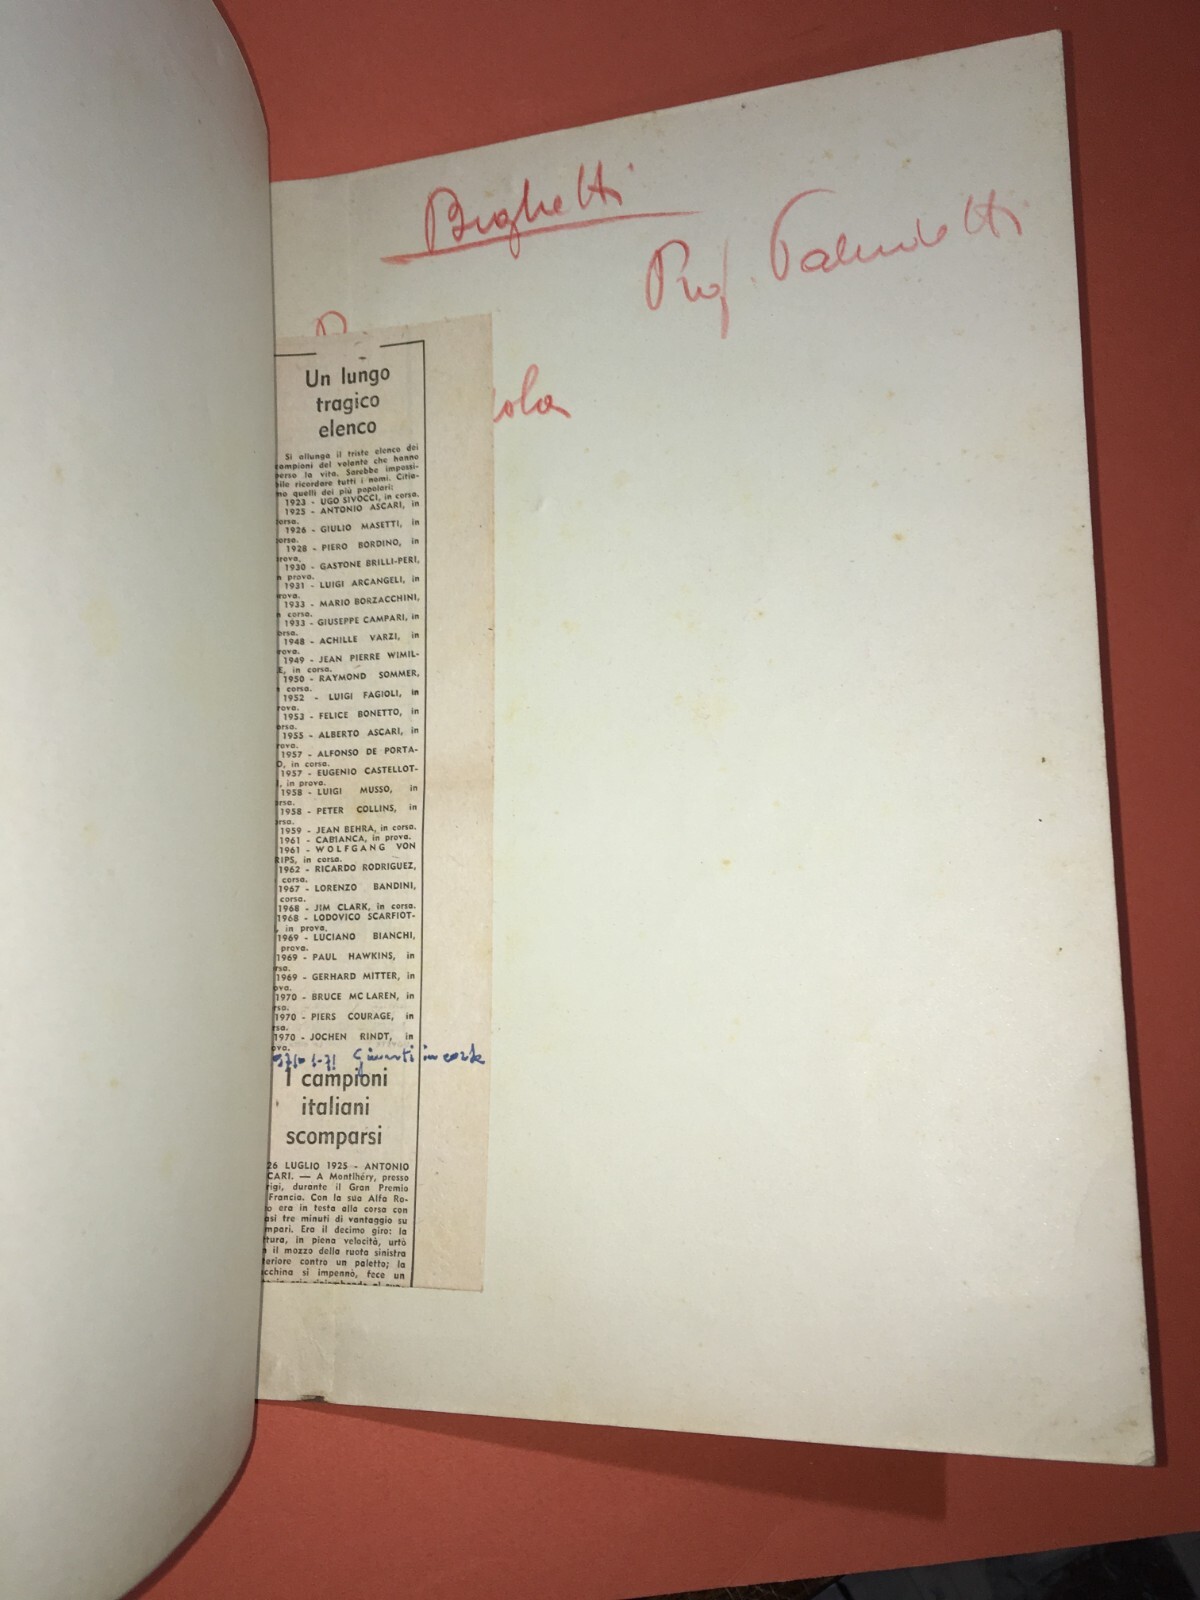 Bighetti
Prof.
Un lungo
tragico
elenco
Si allunga il triste elenco dei
campioni del volante che hanno
perso la vita. Sarebbe impossi-
bile ricordare tutti i nomi. Citia-
mo quelli dei più popolari:
1923 - UGO SIVOCCI, in corsa.
1925 - ANTONIO ASCARI, in
corsa.
1926 - GIULIO MASETTI, in
corsa.
1928 - PIERO BORDINO, in
prova.
1930 - GASTONE BRILLI-PERI,
in prova.
1931 - LUIGI ARCANGELI, in
prova.
1933 - MARIO BORZACCHINI,
corsa.
1933 - GIUSEPPE CAMPARI, in
orsa.
1948 - ACHILLE VARZI, in
rova.
1949 - JEAN PIERRE WIMIL-
E, in corsa.
1950 - RAYMOND SOMMER,
corsa.
1952 - LUIGI FAGIOLI, in
rova.
1953 - FELICE BONETTO, in
orsa.
1955 - ALBERTO ASCARI, in
rova.
1957 - ALFONSO DE PORTA-
O, in corsa.
1957 - EUGENIO CASTELLOT-
I, in prova.
1958 - LUIGI MUSSO, in
rsa.
1958 - PETER COLLINS, in
rsa.
1959 - JEAN BEHRA, in corsa.
1961 - CABIANCA, in prova.
1961 - WOLFGANG VON
RIPS, in corsa.
1962 - RICARDO RODRIGUEZ,
corsa.
1967 - LORENZO BANDINI,
corsa.
1968 - JIM CLARK, in corsa.
1968 - LODOVICO SCARFIOT-
, in prova.
1969 - LUCIANO BIANCHI,
prova.
1969 - PAUL HAWKINS, in
rsa.
1969 - GERHARD MITTER, in
ova.
1970 - BRUCE MC LAREN, in
rsa.
1970 - PIERS COURAGE, in
rsa.
1970 - JOCHEN RINDT, in
ova.
Giunti in
I campioni
italiani
scomparsi
26 LUGLIO 1925 - ANTONIO
CARI. — A Montlhéry, presso
rigi, durante il Gran Premio
Francia. Con la sua Alfa Ro-
o era in testa alla corsa con
asi tre minuti di vantaggio su
mpari. Era il decimo giro: la
tura, in piena velocità, urtò
il mozzo della ruota sinistra
teriore contro un paletto; la
cchina si impennò, fece un